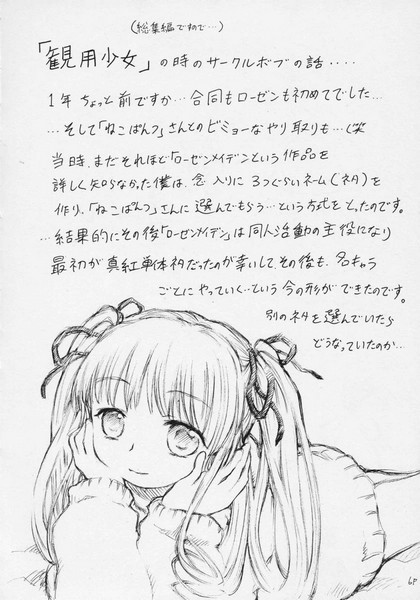 (総集編ですので…)
「観用少女」の時のサークルボブの話‥‥
1年ちょっと前ですか…合同もローゼンも初めてでした…
…そして「ねこぱんつ」さんとのビミョーなやり取りも…(笑
当時、まだそれほど「ローゼンメイデン」という作品を
詳しく知らなかった僕は、念入りに3つぐらいネーム(ネタ)を
作り、「ねこぱんつ」さんに選んでもらう…という方式をとったのです。
…結果的にその後「ローゼンメイデン」は同人活動の主役になり
最初が真紅単体ネタだったのが幸いして、その後も、各キャラ
ごとにやっていく…という今の形ができたのです。
別のネタを選んでいたら
どうなっていたのか…
68